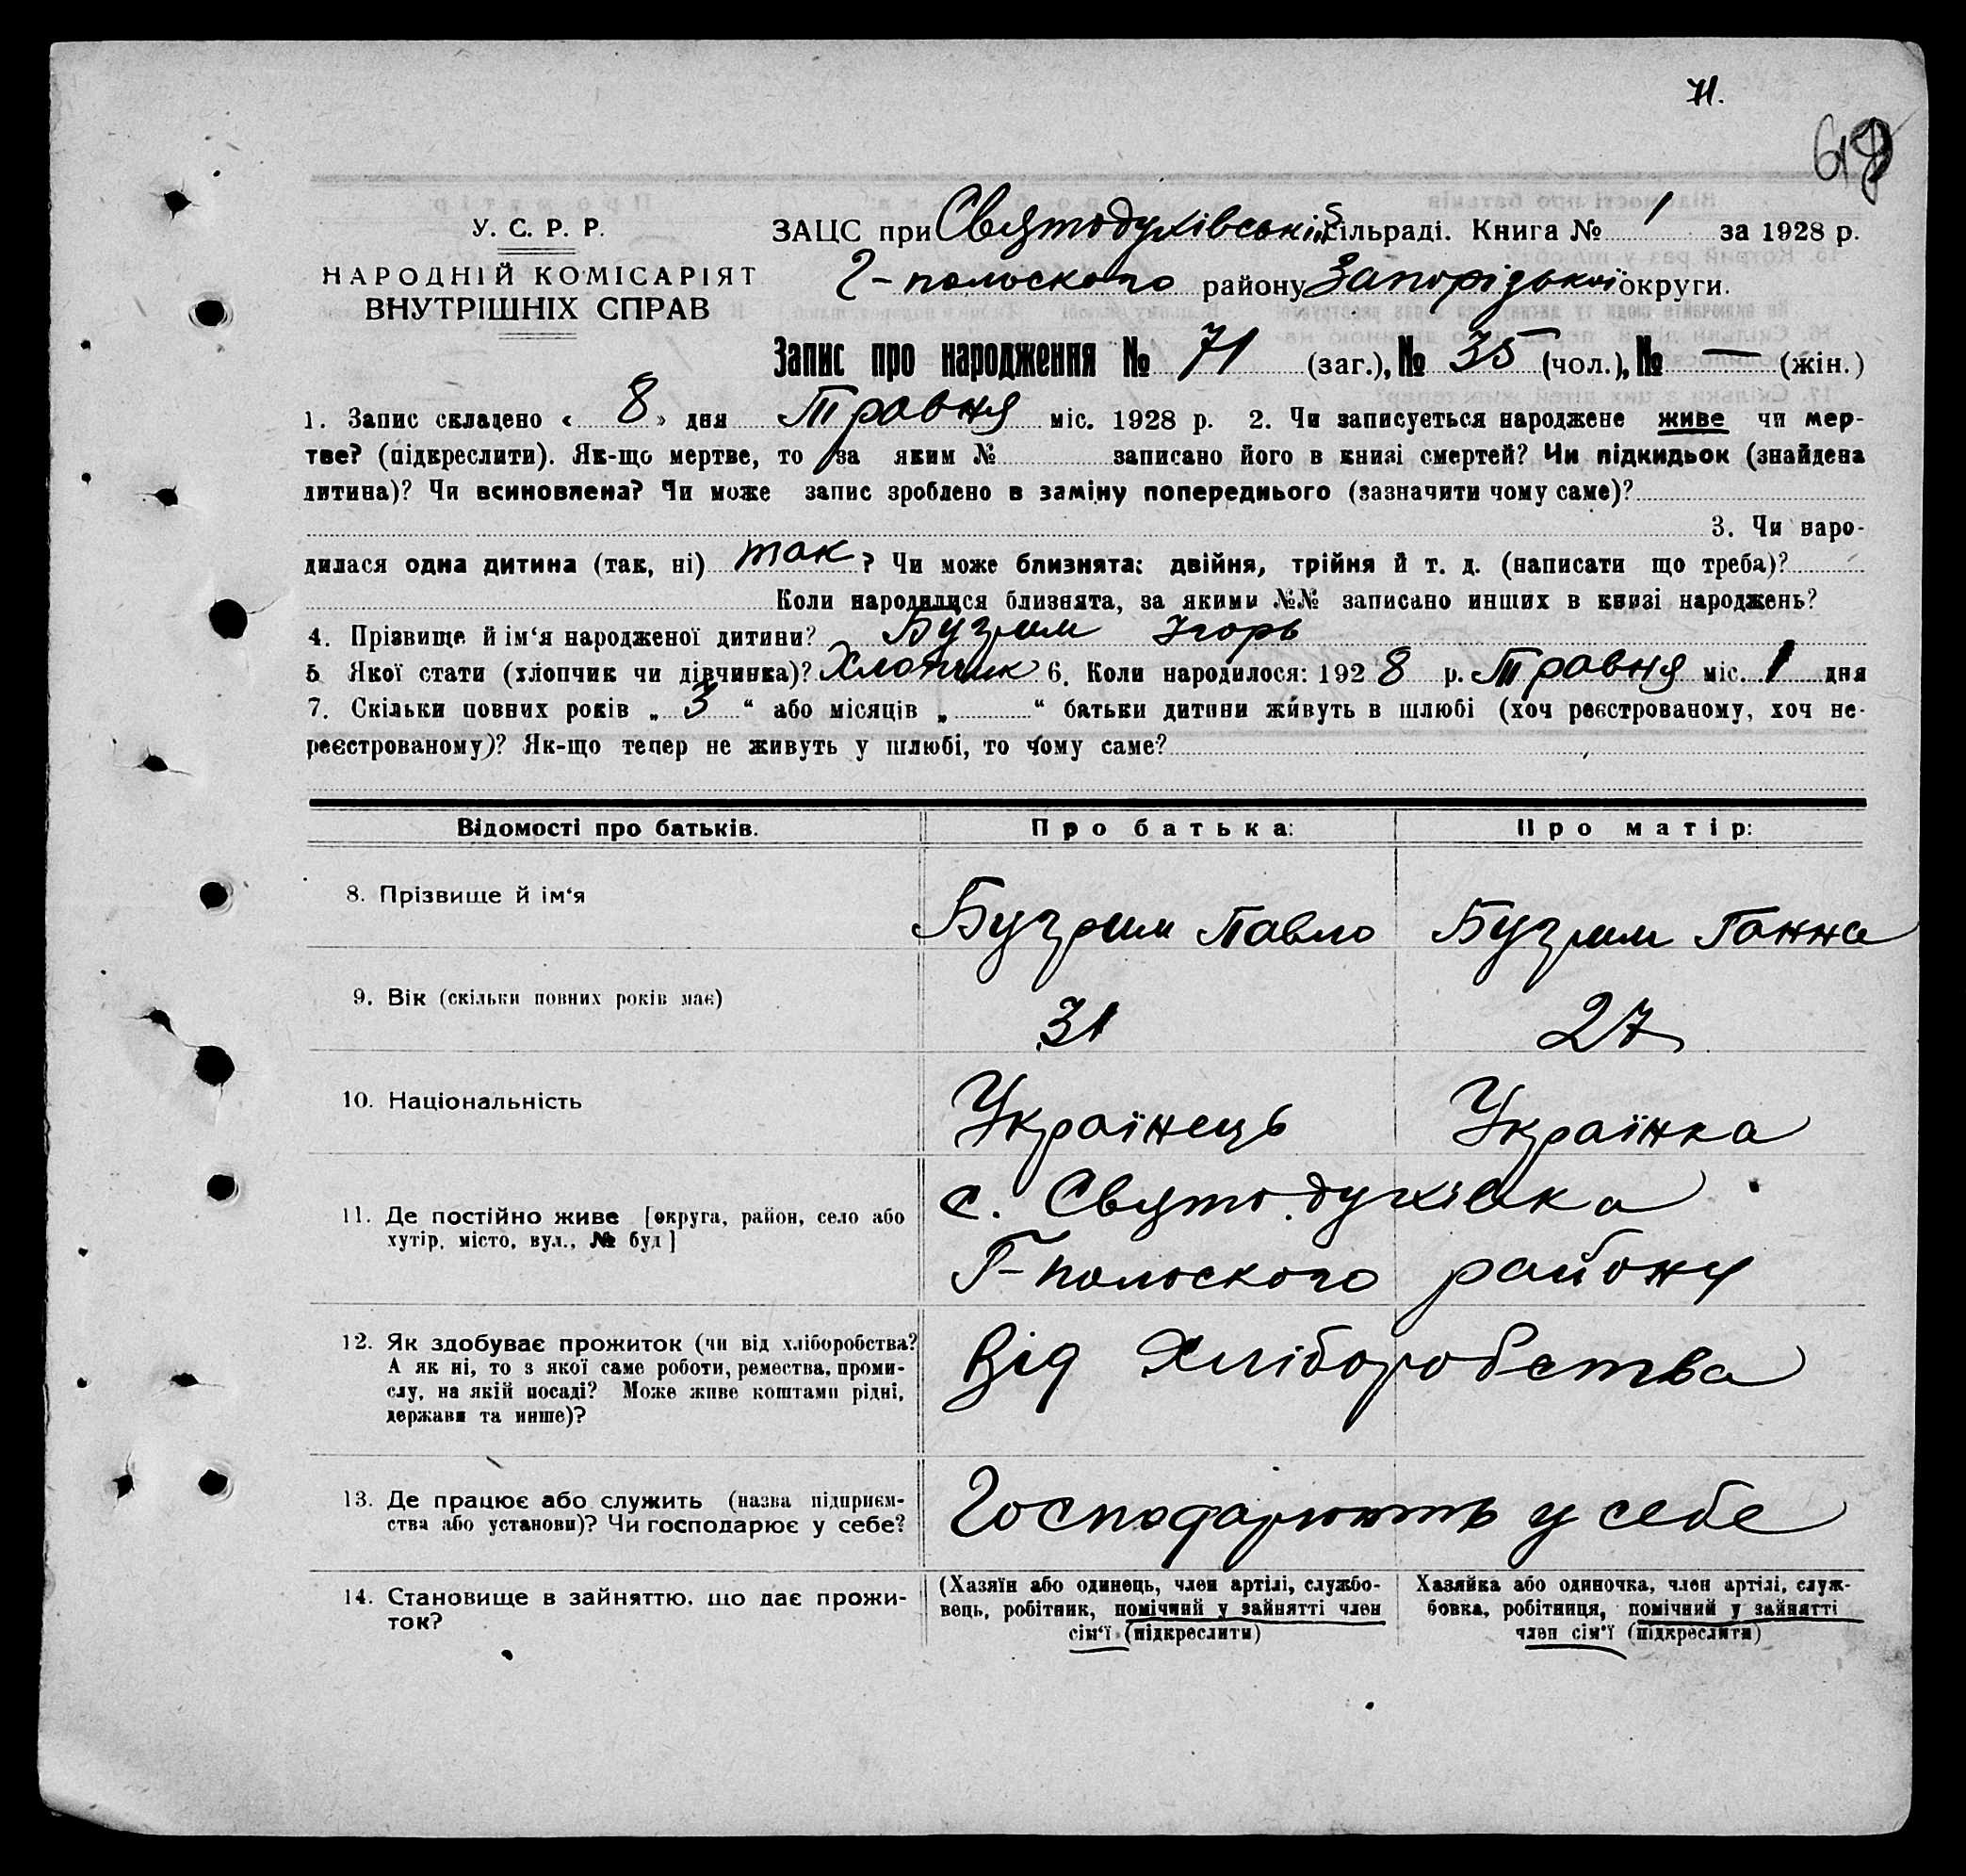 71.
У. С. Р. Р.
НАРОДНІЙ КОМІСАРІЯТ
ВНУТРІШНІХ СПРАВ
ЗАЦС при Святодухівській сільраді. Книга № 1 за 1928 р.
Г-польского району Запорізької округи.
Запис про народження № 71 (заг.), № 35 (чол.), № — (жін.)
1. Запис складено « 8 » дня Травня міс. 1928 р. 2. Чи записується народжене живе чи мер-
тве? (підкреслити). Як-що мертве, то за яким № записано його в книзі смертей? Чи підкидьок (знайдена
дитина)? Чи всиновлена? Чи може запис зроблено в заміну попереднього (зазначити чому саме)?
3. Чи наро-
дилася одна дитина (так, ні) так ? Чи може близнята: двійня, трійня й т. д. (написати що треба)?
Коли народилися близнята, за якими №№ записано инших в книзі народжень?
4. Прізвище й ім‘я народженої дитини? Ігорь
5 Якої стати (хлопчик чи дівчинка)? Хлопчик 6. Коли народилося: 1928 р. Травня міс. 1 дня
7. Скільки повних років „ 3 “ або місяців „ “ батьки дитини живуть в шлюбі (хоч реєстрованому, хоч не-
реєстрованому)? Як-що тепер не живуть у шлюбі, то чому саме?
Відомості про батьків. Про батька: Про матір:
8. Прізвище й ім‘я
Павло Ганна
9. Вік (скільки повних років має)
31 27
10. Національність
Українець Українка
11. Де постійно живе [округа, район, село або
хутір, місто, вул., № буд]
с. Святодухівка
Г-польского району
12. Як здобуває прожиток (чи від хліборобства?
А як ні, то з якої саме роботи, ремества, проми-
слу, на якій посаді? Може живе коштами рідні,
держави та инше)?
Від Хліборобства
13. Де працює або служить (назва підприєм-
ства або установи)? Чи господарює у себе?
Господарюють у себе
14. Становище в зайняттю, що дає прожи-
ток?
(Хазяїн або одинець, член артілі, службо-
вець, робітник, помічний у зайнятті член
сім‘ї (підкреслити)
Хазяйка або одиночка, член артілі, служ-
бовка, робітниця, помічний у зайнятті
член сім‘ї (підкреслити)